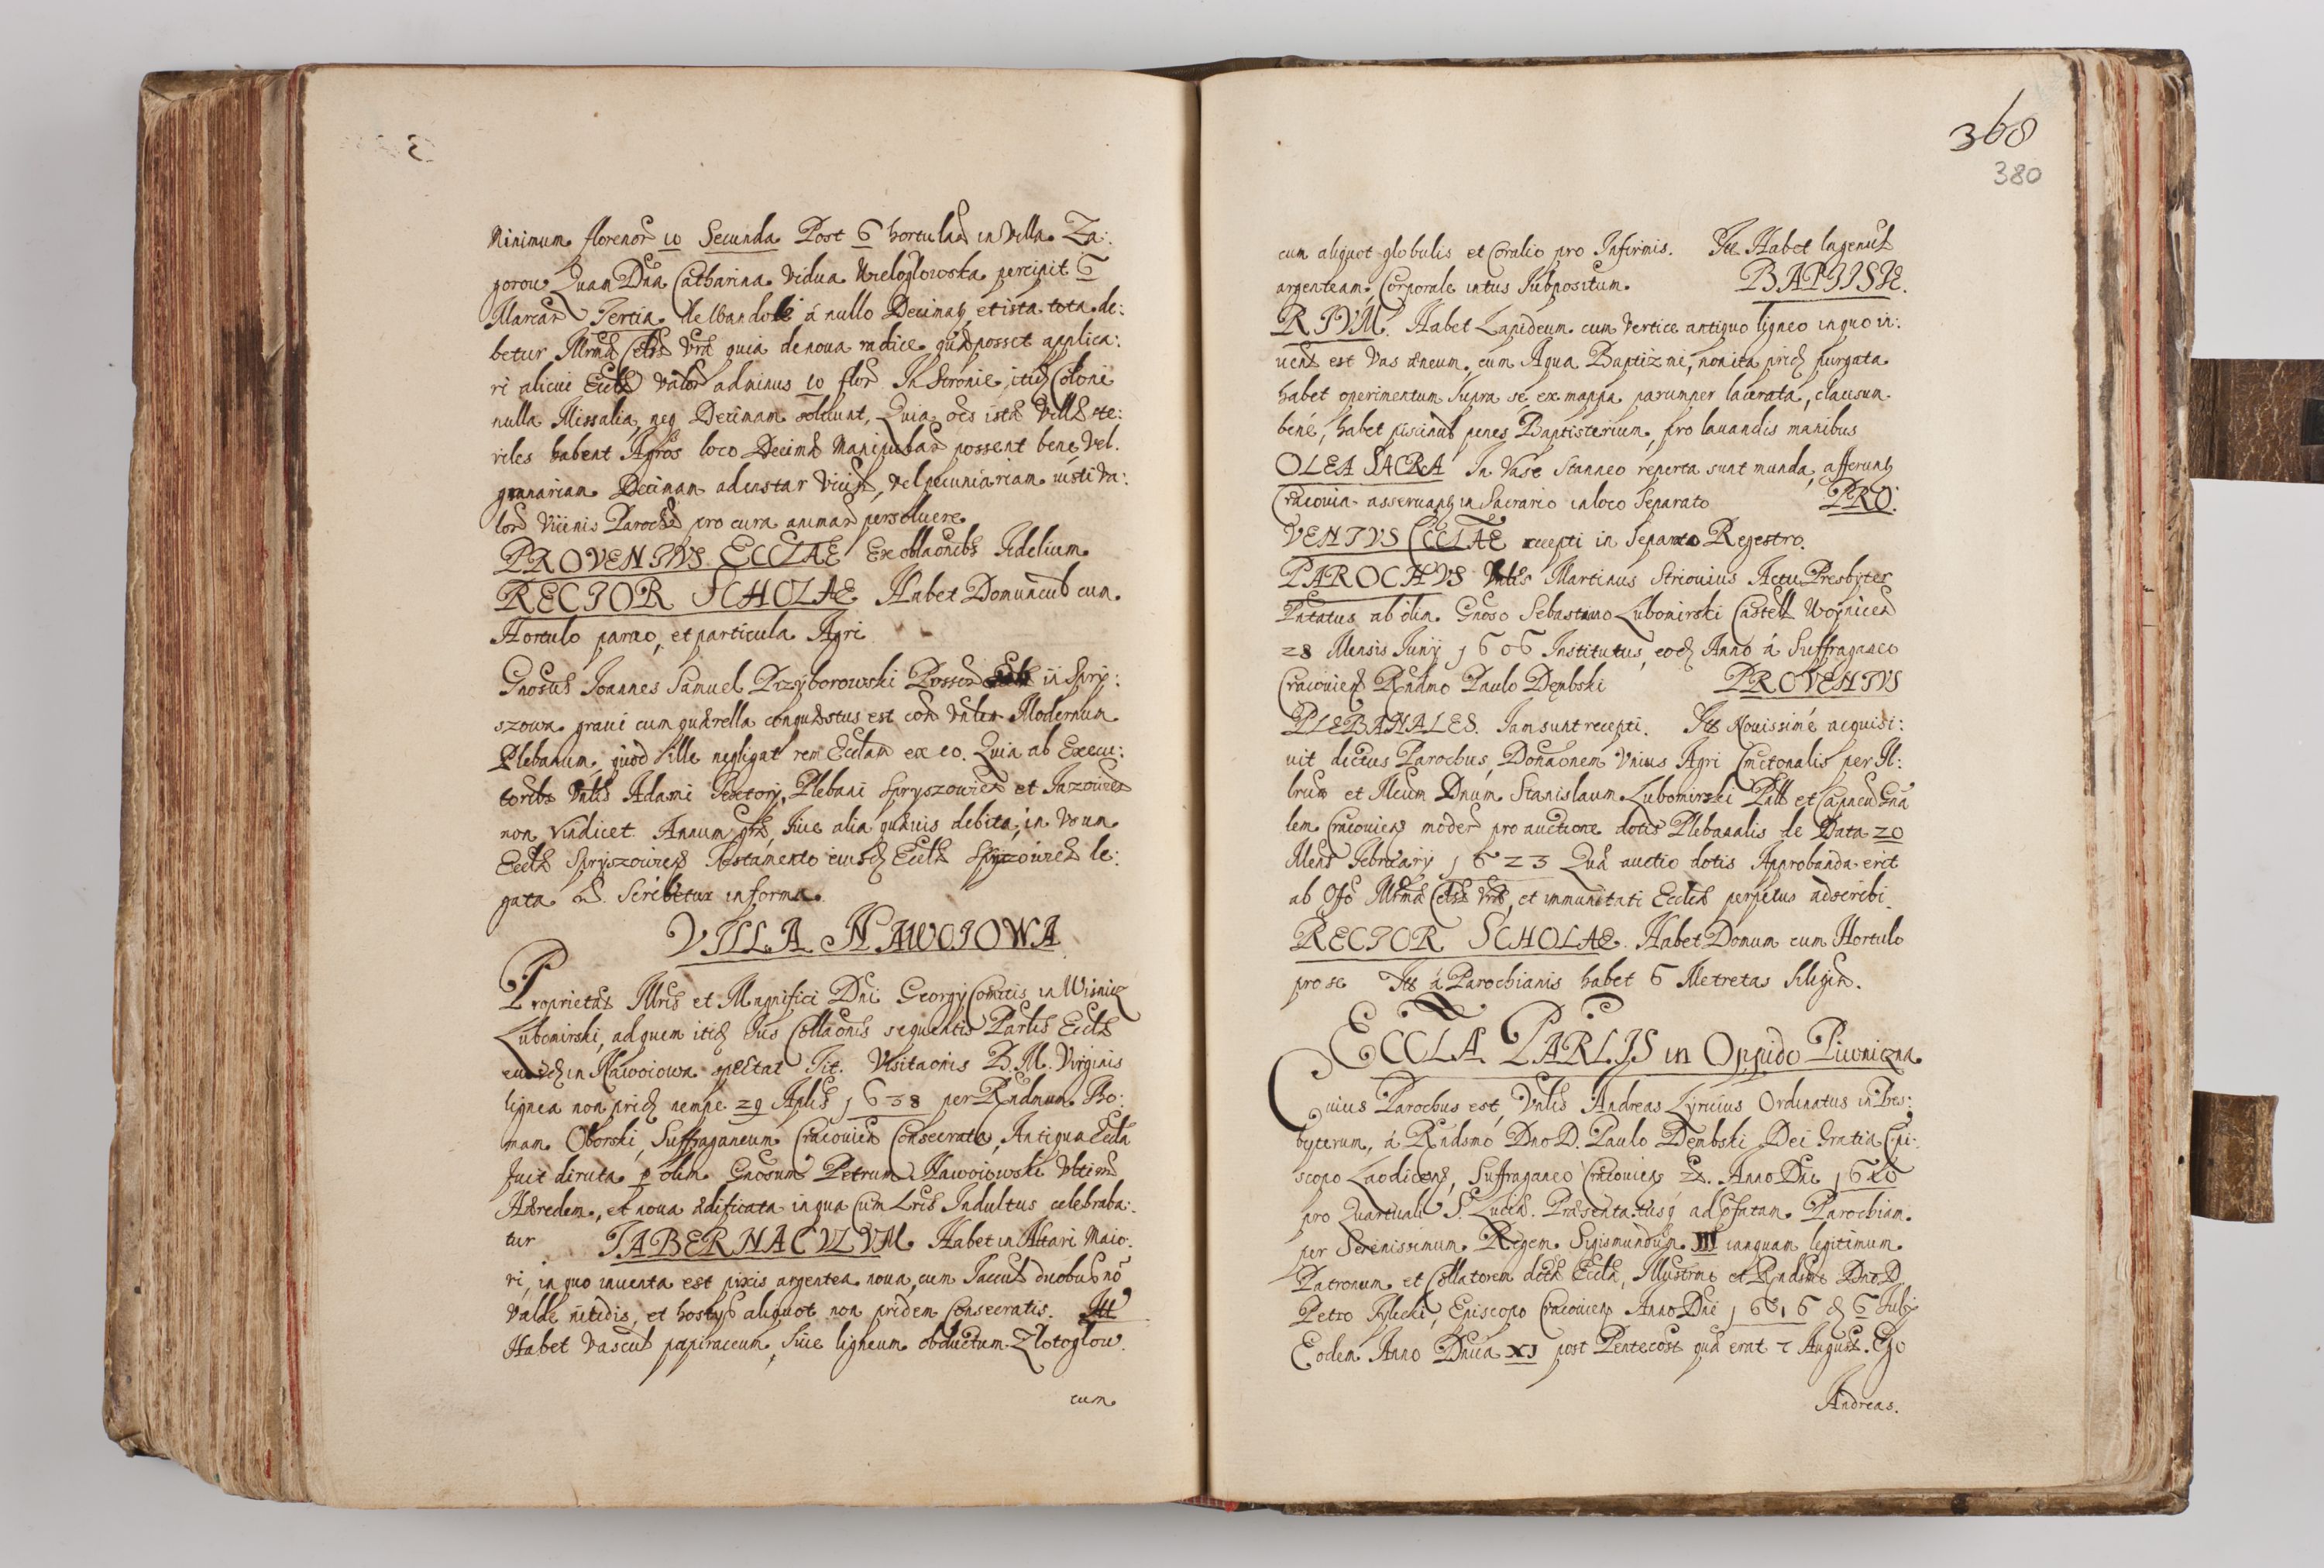 Minimum florenor 10 Secunda Post 6 hortulan in Villa Za:
gorow Quam Dna Catharina Vidua Wieloglowska percipit 6
Marcar Tertia de á nullo Decimatq et ista tota de:
betur Illrmæ Celsæ Vræ quia de noua radice quæ posset applica:
ri alicui Ecclæ Valor ad minus 10 flor In Stronie itidq Coloni
nulla Missalia, neq Decimam soluunt, Quia oes istæ Villæ ste:
riles habent Agros loco Decimæ Manipular possent bene Vel
granariam Decimam ad instar Vicin, Vel pecuniariam iusti Va:
loris Viinis Paroch pro cura animar persoluere
PROVENTVS ECCLAE Ex oblaonibs Fidelium
RECTOR SCHOLAE Habet Domuncul cum
Hortulo paruo, et particula Agri
Gnosus Joannes Samuel Przyborowski Possor in Spry:
szowa graui cum quærella conquæstus est cora Vnlem Modernum
Plebanum, quod ille negligat rem Ecclam ex eo. Quia ab Execu:
toribs Vnlis Adami Textorij, Plebani Spryszowien et Jazowien
non Vindicet Annum græ, siue alia quæuis debita, in Vsum
Ecclæ Spryszowien Testamento eiusdq Ecclæ Spryszowien le:
gata Scribetur in forma
VILLA NAWOIOWA
Proprietas Illris et Magnifici Dni Georgij Comitis in Wisnicz
Lubomirski, ad quem itidq Jus Collaonis sequentis Parlis Ecclæ
eiusdq in Nawoiowa spectat Tit. Visitaonis B. M. Virginis
lignea non pridq nempe 29 Aplis 1638 per Rndmum Tho:
mam Oborski, Suffraganeum Cracouien Consecrata, Antiqua Eccla
fuit diruta p olim Gnosum Petrum Nawoiowski Vltimu
Hæredem, et noua ædificata in qua Cum Lris Indultus celebraba:
tur TABERNACVLVM Habet in Altari Maio:
ri, in quo inuenta est pixis argentea noua, cum Saccul duobus nō
Valde nitidis, et hostijs aliquot non pridem Consecratis. Itē
Habet Vascul papiraceum, siue ligneum obductum Zlotoglow
cum
368
380
cum aliquot globulis et Coralio pro Infirmis. Itē Habet lagencul
argenteam Corporale intus subpositum. BAPTISTE.
RIVM. Habet Lapideum cum Vertice antiquo ligneo in quo in:
uent est Vas æneum, cum Aqua Baptizmi, non ita pridq purgata
habet operimentum supra se ex mappa parumper lacerata, clausum
bené, habet piscinul penes Baptisterium pro lauandis manibus
OLEA SACRA In Vase Stanneo reperta sunt munda, afferuntq
Cracouia asseruantq in Sacrario in loco Separato PRO:
VENTVS ECCLAE recepti in Separato Regestro.
PAROCHVS Vnlis Martinus Striouius Actu Presbyter
Pntatus ab olim Gnoso Sebastiano Lubomirski Castell Woynicen
28 Mensis Junij 1606 Institutus, eodq Anno á Suffraganeo
Cracouien Rndmo Paulo Dembski PROVENTVS
PLEBANALES. Iam sunt recepti. Itē Nouissimé acquisi:
uit dictus Parochus, Donaonem Vnius Agri Cmetonalis per Il:
lrem et Mcum Dnum Stanislaum Lubomirski Pall et Capneu Gna
lem Cracouien moder pro auctione dotis Plebanalis de Data 20
Mens Februarij 1623 Quæ auctio dotis Approbanda erit
ab Offo Illrmæ Celsæ Vræ, et immunitati Ecclæs perpetuo adscribi.
RECTOR SCHOLAE. Habet Domum cum Hortulo
pro se Itē á Parochianis habet 6 Metretas siliginis.
ECCLA PARLIS in Oppido Piwnizna
Cuius Parochus est, Vnlis Andreas Lyricius Ordinatus in Pres:
byterum, á Rndsmo Dno D. Paulo Dembski Dei Gratia Epi:
scopo Laodicens, Suffraganeo Cracouien Anno Dni 1610
pro Quartuali S. Luciæ. Præsentatusq ad Pfatam Parochiam
per Serenissimum Regem Sigismundum III tanquam legitimum
Patronum et Collatorem dctæ Ecclæ, Illustrmo et Rndsmo Dno D
Petro Tylicki, Episcopo Cracouien Anno Dni 1616 d 6 Julij
Eodem Anno Dnica XI post Pentecost quæ erat 7 August. Ego
Andreas.